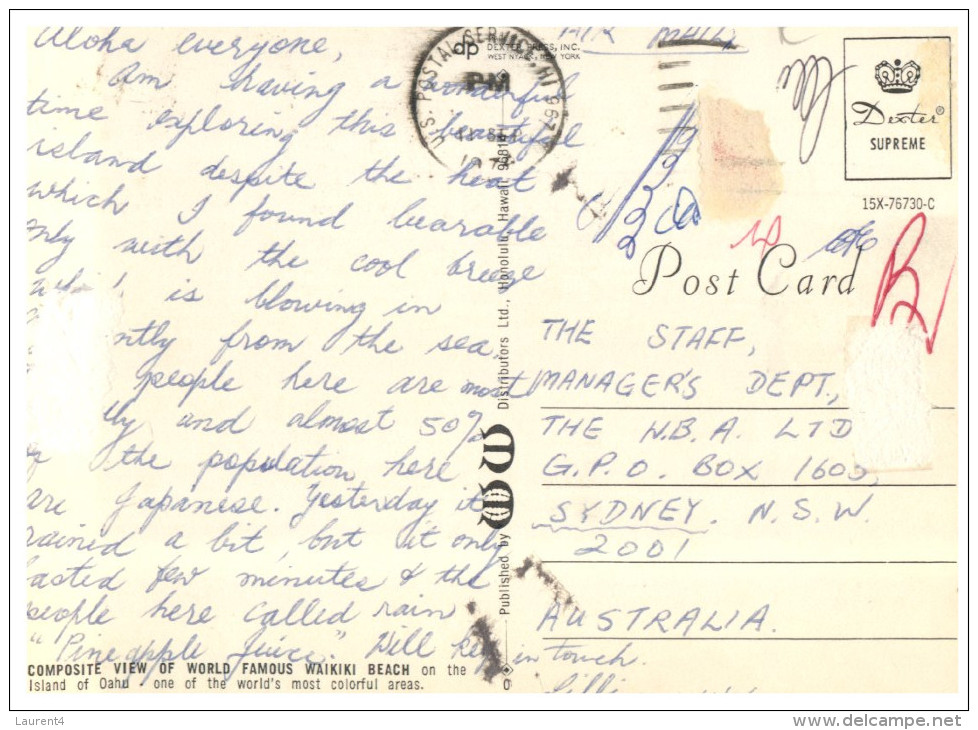 Aloha everyone,
Am having a wonderful
time exploring this beautiful
island despite the heat
which I found bearable
only with the cool breeze
is blowing in
ntly from the sea.
people here are most
lly and almost 50%
of the population here
are Japanese. Yesterday it
rained a bit, but it only
lasted few minutes & the
people here called rain
"Pineapple Juice". Will keep in touch.
Lilli
COMPOSITE VIEW OF WORLD FAMOUS WAIKIKI BEACH on the
Island of Oahu - one of the world's most colorful areas.
dp
DEXTER PRESS, INC.
WEST NYACK, NEW YORK
U.S. POSTAL SERVICE, HI
PM
Published by
Distributors Ltd., Honolulu, Hawaii
AIR MAIL
Dexter®
SUPREME
15X-76730-C
Post Card
THE STAFF,
MANAGER'S DEPT.,
THE N.B.A. LTD
G.P.O. BOX
SYDNEY. N.S.W.
2001
AUSTRALIA.
Laurent4
www.delcampe.net